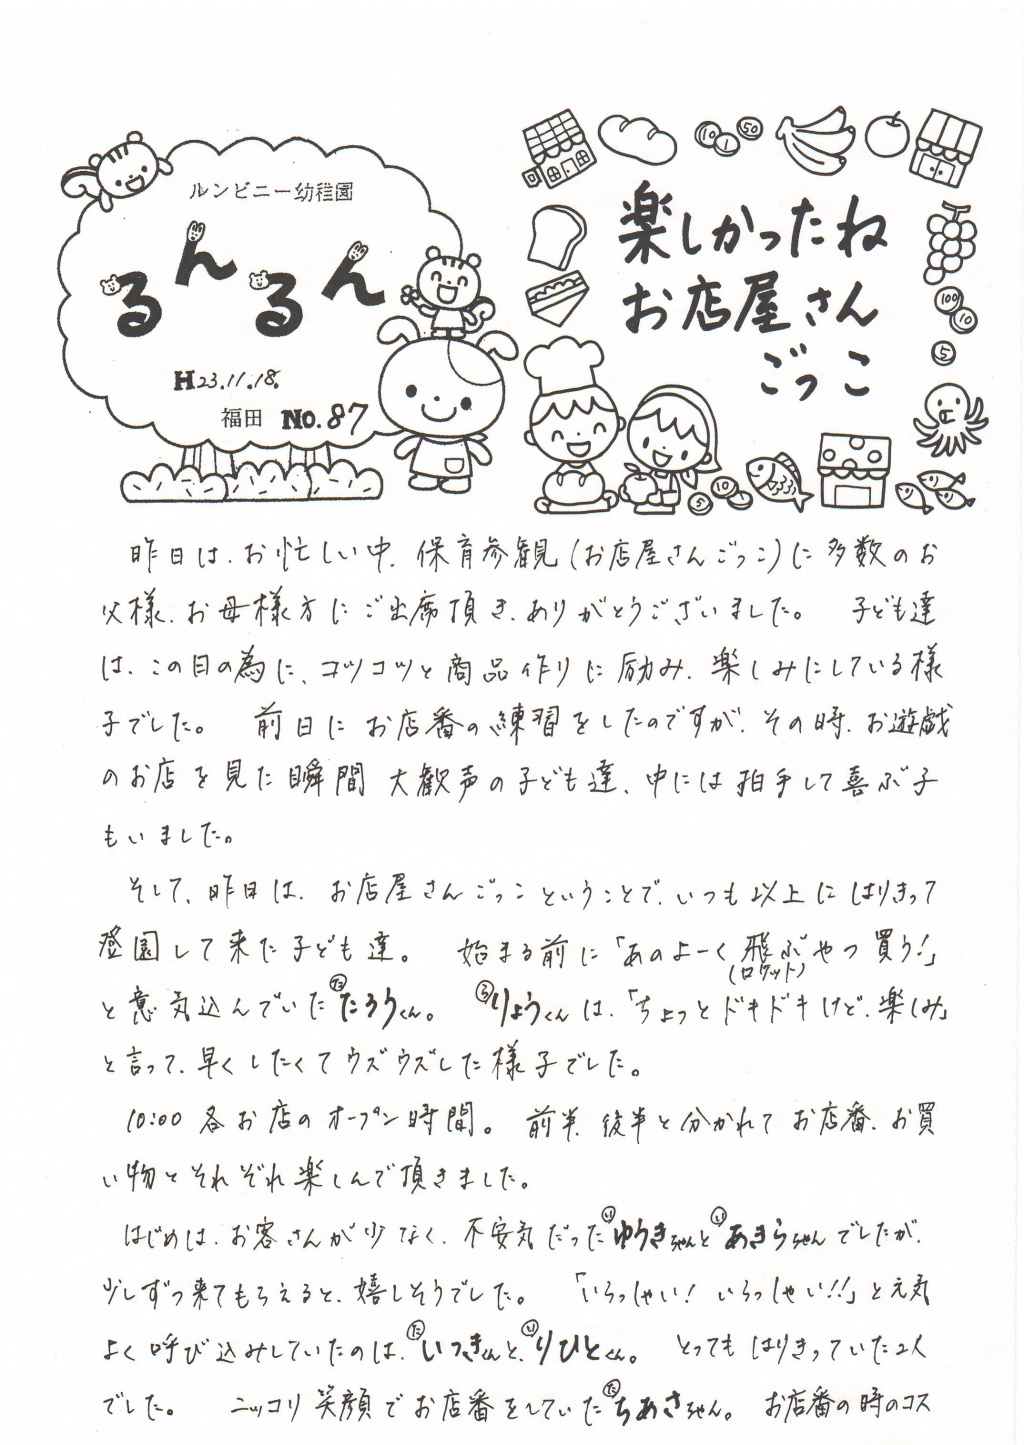 ルンビニー幼稚園
るんるん
H23.11.18.
福田 No.87
楽しかったね
お店屋さん
ごっこ
昨日は、お忙しい中、保育参観(お店屋さんごっこ)に多数のお
父様、お母様方にご出席頂き、ありがとうございました。 子ども達
は、この日の為に、コツコツと商品作りに励み、楽しみにしている様
子でした。 前日にお店番の練習をしたのですが、その時、お遊戯
のお店を見た瞬間大歓声の子ども達、中には拍手して喜ぶ子
もいました。
そして、昨日は、お店屋さんごっこということで、いつも以上にはりきって
登園して来た子ども達。 始まる前に「あのよーく飛ぶやつ買う!」
(ロケット)
と意気込んでいた たろうくん。 りょうくんは、「ちょっとドキドキけど、楽しみ」
と言って、早くしたくてウズウズした様子でした。
10:00 各お店のオープン時間。 前半、後半と分かれてお店番、お買
い物とそれぞれ楽しんで頂きました。
はじめは、お客さんが少なく、不安気だった ゆうきちゃんと あきらちゃんでしたが、
少しずつ来てもらえると、嬉しそうでした。 「いらっしゃい! いらっしゃい!!」と元気
よく呼び込みしていたのは、いつきくんと、りひとくん。 とってもはりきっていた2人
でした。 ニッコリ笑顔でお店番をしていた ちあさちゃん。 お店番の時のコス